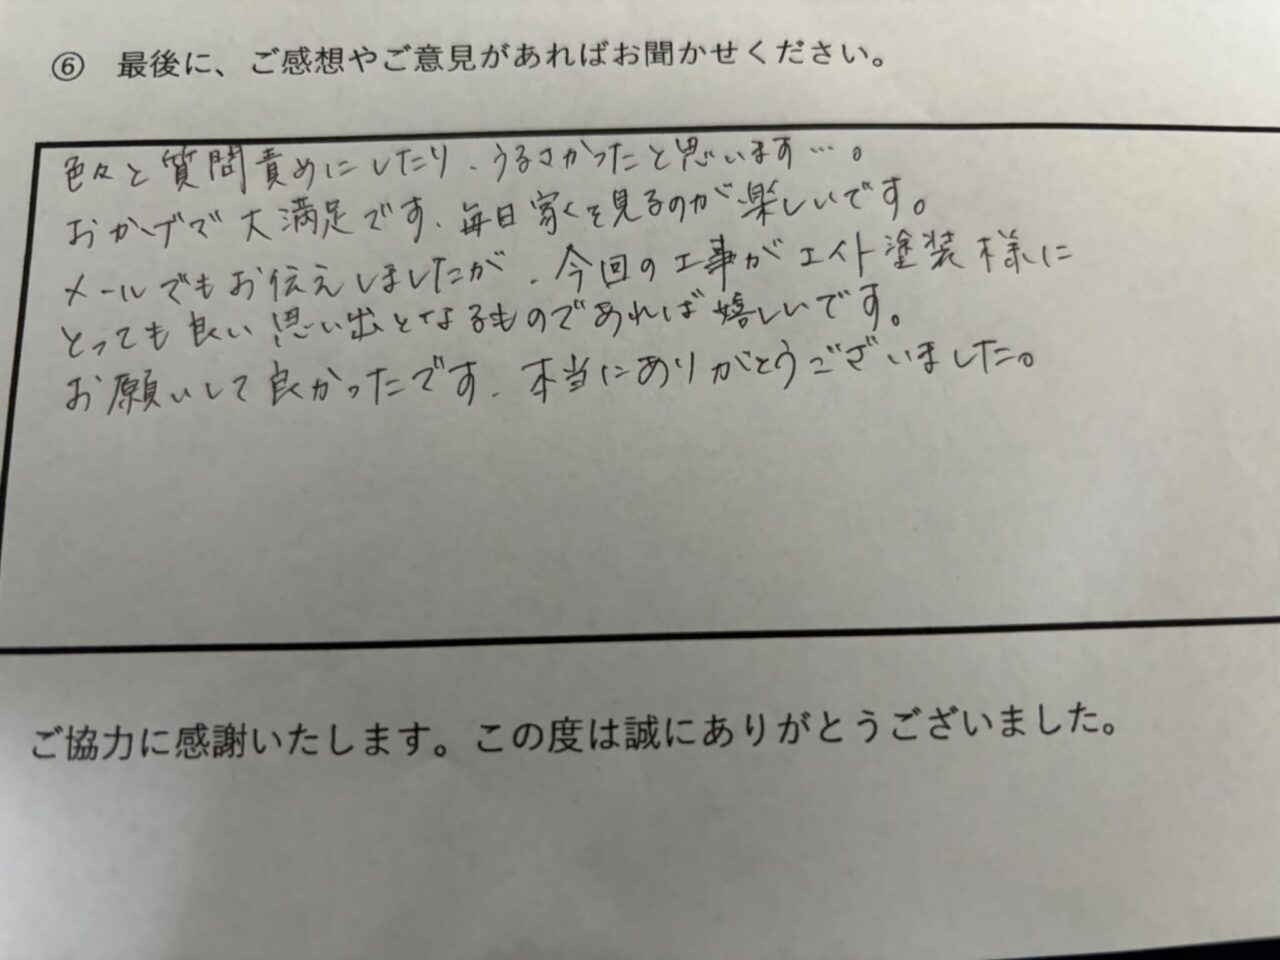 ⑥ 最後に、ご感想やご意見があればお聞かせください。
色々と質問責めにしたり、うるさかったと思います…。
おかげで大満足です、毎日家を見るのが楽しいです。
メールでもお伝えしましたが、今回の工事がエイト塗装様に
とっても良い思い出となるものであれば嬉しいです。
お願いして良かったです、本当にありがとうございました。
ご協力に感謝いたします。この度は誠にありがとうございました。